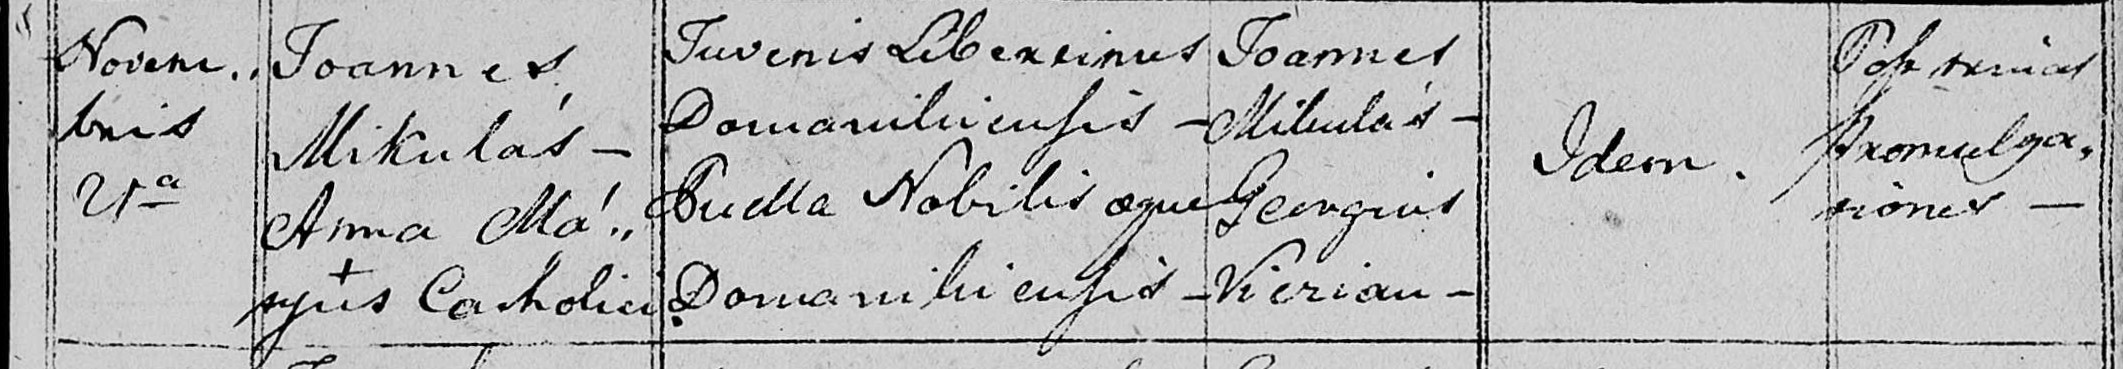 Novem„
bris
21ᵃ
Joannes
Mikulás –
Anna Má„
tyús Catholici.
Juvenis Libertinus
Domanikiensis –
Puella Nobilis aeque
Domanikiensis –
Joannes
Mikulás –
Georgius
Idem.
Post trinas
Promulga„
tiones –